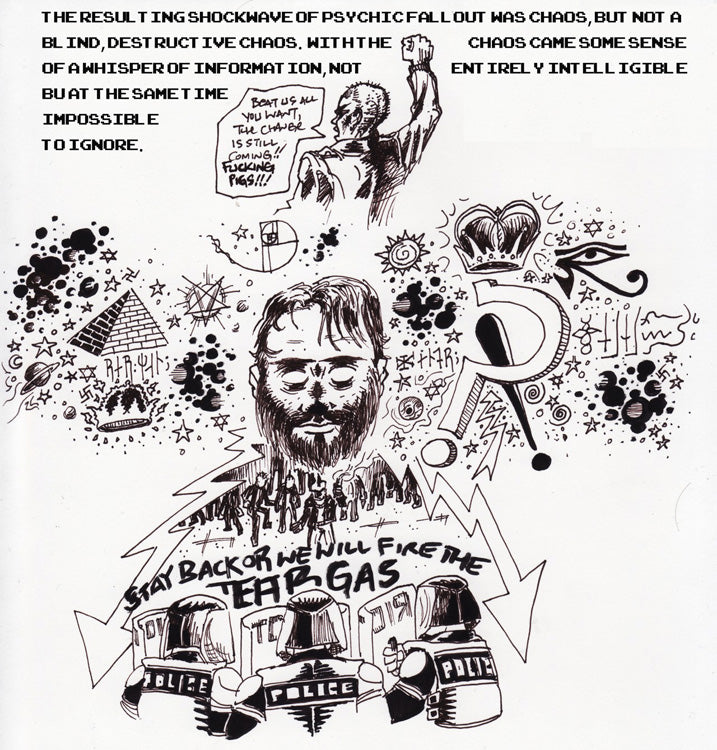 THE RESULTING SHOCKWAVE OF PSYCHIC FALLOUT WAS CHAOS, BUT NOT A
BLIND, DESTRUCTIVE CHAOS. WITH THE CHAOS CAME SOME SENSE
OF A WHISPER OF INFORMATION, NOT ENTIRELY INTELLIGIBLE
BU AT THE SAME TIME
IMPOSSIBLE
TO IGNORE.
BEAT US ALL
YOU WANT,
THE
IS STILL
COMING!!
FUCKING
PIGS!!!
STAY BACK OR WE WILL FIRE THE
TEAR GAS
POLICE
POLICE
POLICE